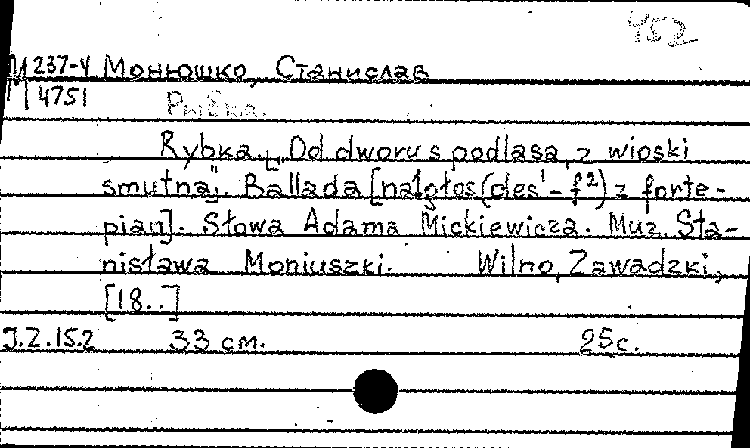 452
М 237-4 Монюшко, Станислав
М 4751 Рыбка.
Rybka. „Od dworu s podlasa, z wioski
smutna". Ballada [na 1 głos (des¹ - f²) z forte-
pian]. Słowa Adama Mickiewicza. Muz. Sta-
nisława Moniuszki. Wilno, Zawadzki,
[18..]
J.Z.15.2 33 см. 25с.